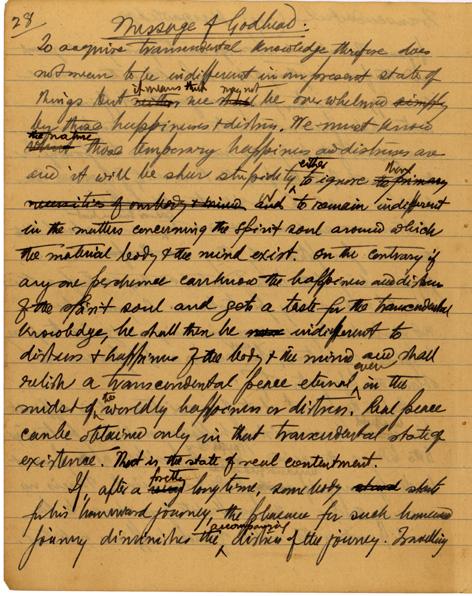 28/ Message of Godhead:
To acquire transcendental knowledge therefore does
not mean to be indifferent in our present state of
things but it means that we may not be overwhelmed simply
by these happiness & distress. We must know
the nature those temporary happiness and distresses are
and it will be sheer stupidity either to ignore them primary
necessities of our body & mind and to remain indifferent
in the matters concerning the spirit soul around which
the material body & the mind exist. On the contrary if
any one perchance can know the happiness and distress
of the spirit soul and gets a taste for the transcendental
knowledge, he shall then be indifferent to
distress & happiness of the body & the mind and shall
relish a transcendental peace eternal, even in the
midst of the worldly happiness or distress. Real peace
can be obtained only in that transcendental state of
existence. That is the state of real contentment.
If after a pretty long time, somebody starts
for his homeward journey, the pleasure for such homeward
journey diminishes the accompanying distress of the journey. Travelling